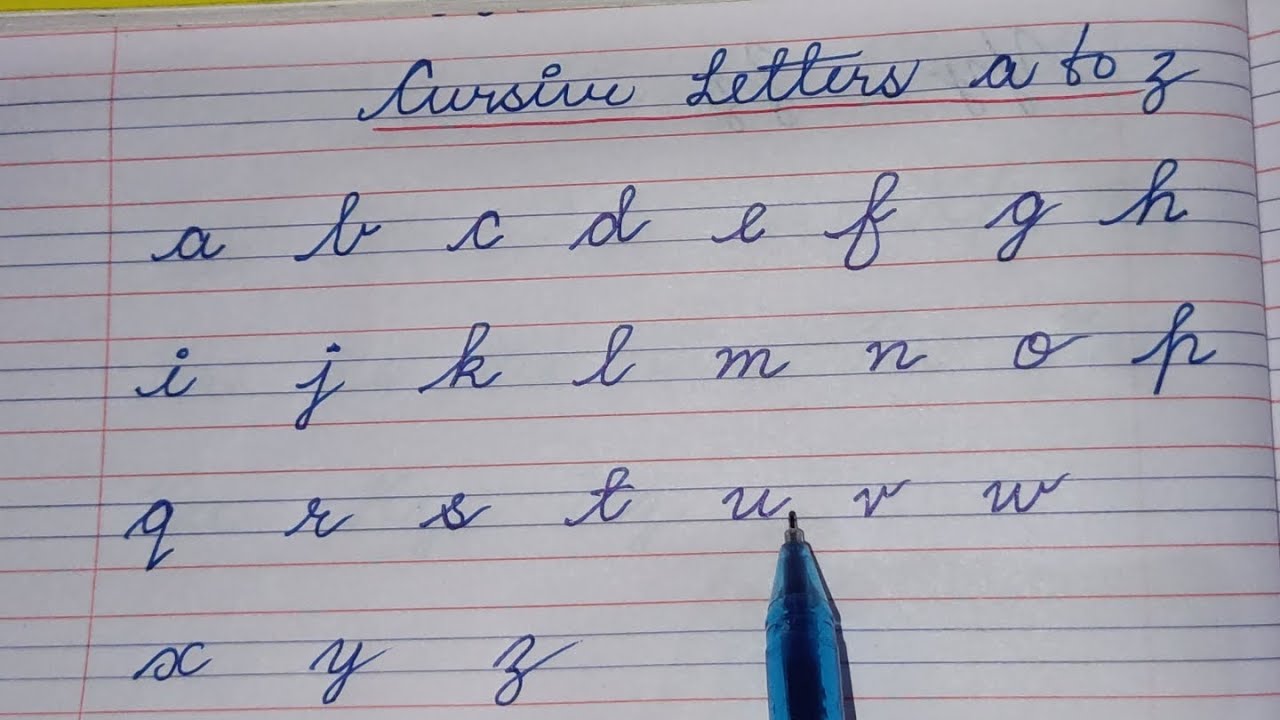 Cursive Letters a to z
a b c d e f g h
i j k l m n o p
q r s t u v w
x y z